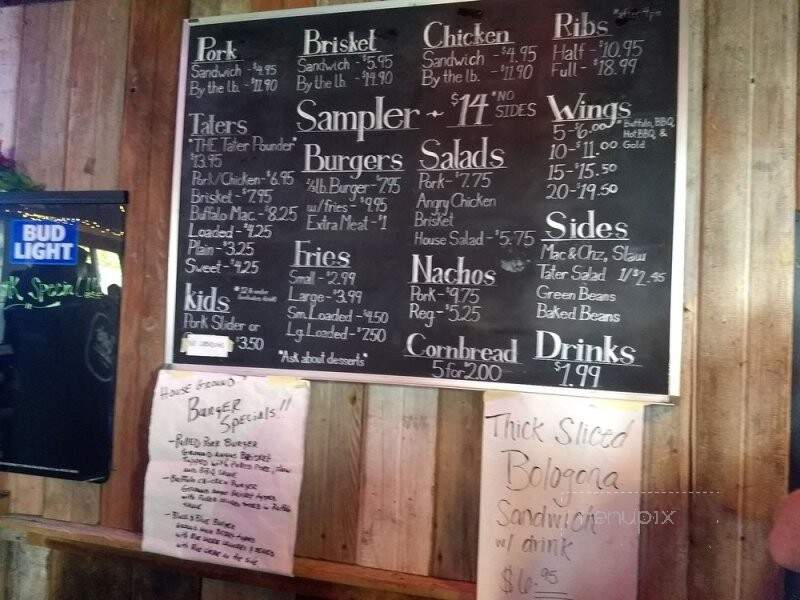 Pork
Sandwich - $4.95
By the lb. - $11.90
Brisket
Sandwich - $5.95
By the lb. - $14.90
Chicken
Sandwich - $4.95
By the lb. - $11.90
Ribs *after 4pm
Half - $10.95
Full - $18.99
Sampler - $14 *NO SIDES
Taters
*THE Tater Pounder*
$13.95
Pork/Chicken - $6.95
Brisket - $7.95
Buffalo Mac - $8.25
Loaded - $4.25
Plain - $3.25
Sweet - $4.25
Burgers
1/2lb. Burger - $7.95
w/fries - $9.95
Extra Meat - $1
Salads
Pork - $7.75
Angry Chicken
Brisket
House Salad - $5.75
Wings
*Buffalo, BBQ,
Hot BBQ, &
Gold
5 - $6.00
10 - $11.00
15 - $15.50
20 - $19.50
kids
Pork Slider or
$3.50
Fries
Small - $2.99
Large - $3.99
Sm. Loaded - $4.50
Lg. Loaded - $7.50
*Ask about desserts*
Nachos
Pork - $9.75
Reg - $5.25
Cornbread
5 for $2.00
Sides
Mac & Chz, Slaw
Tater Salad 1/$2.45
Green Beans
Baked Beans
Drinks
$1.99
BUD
LIGHT
House Ground
Burger
Specials!!
- Pulled Pork Burger
Ground Angus Brisket
Topped with Pulled Pork, slaw
and BBQ sauce
- Buffalo Chicken Burger
- Black & Blue Burger
Thick Sliced
Bologona
Sandwich
w/ drink
$6.95
menupix